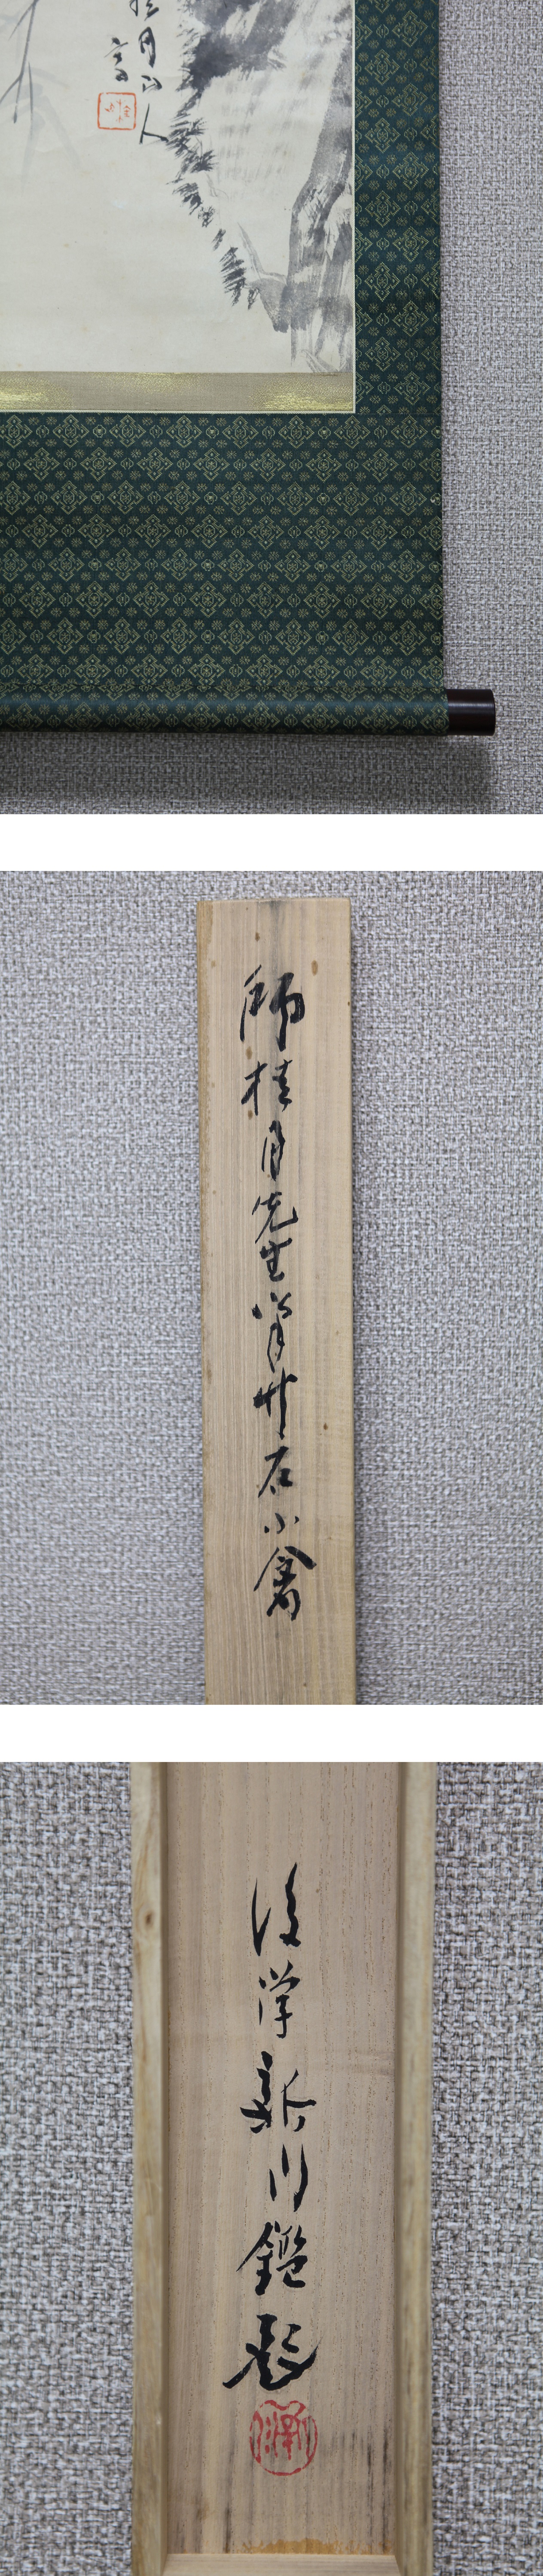 桂月山人
寫
師桂月先生筆竹石小禽
後学新川鑑題